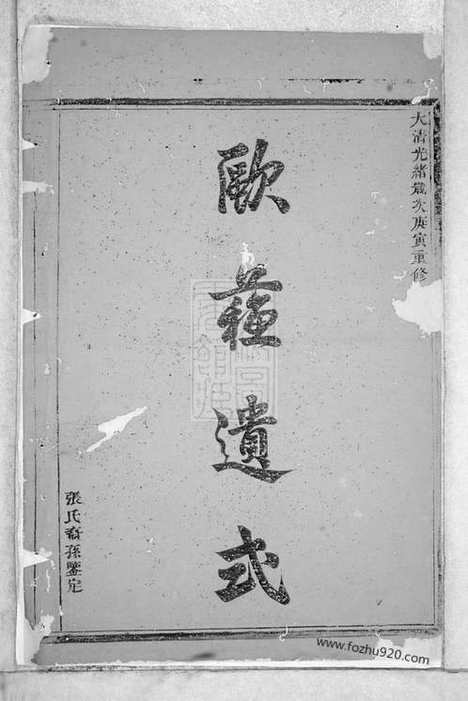 大清光緒歲次庚寅重修
歐蘇遺式
張氏裔孫鑒定
www.fozhu920.com